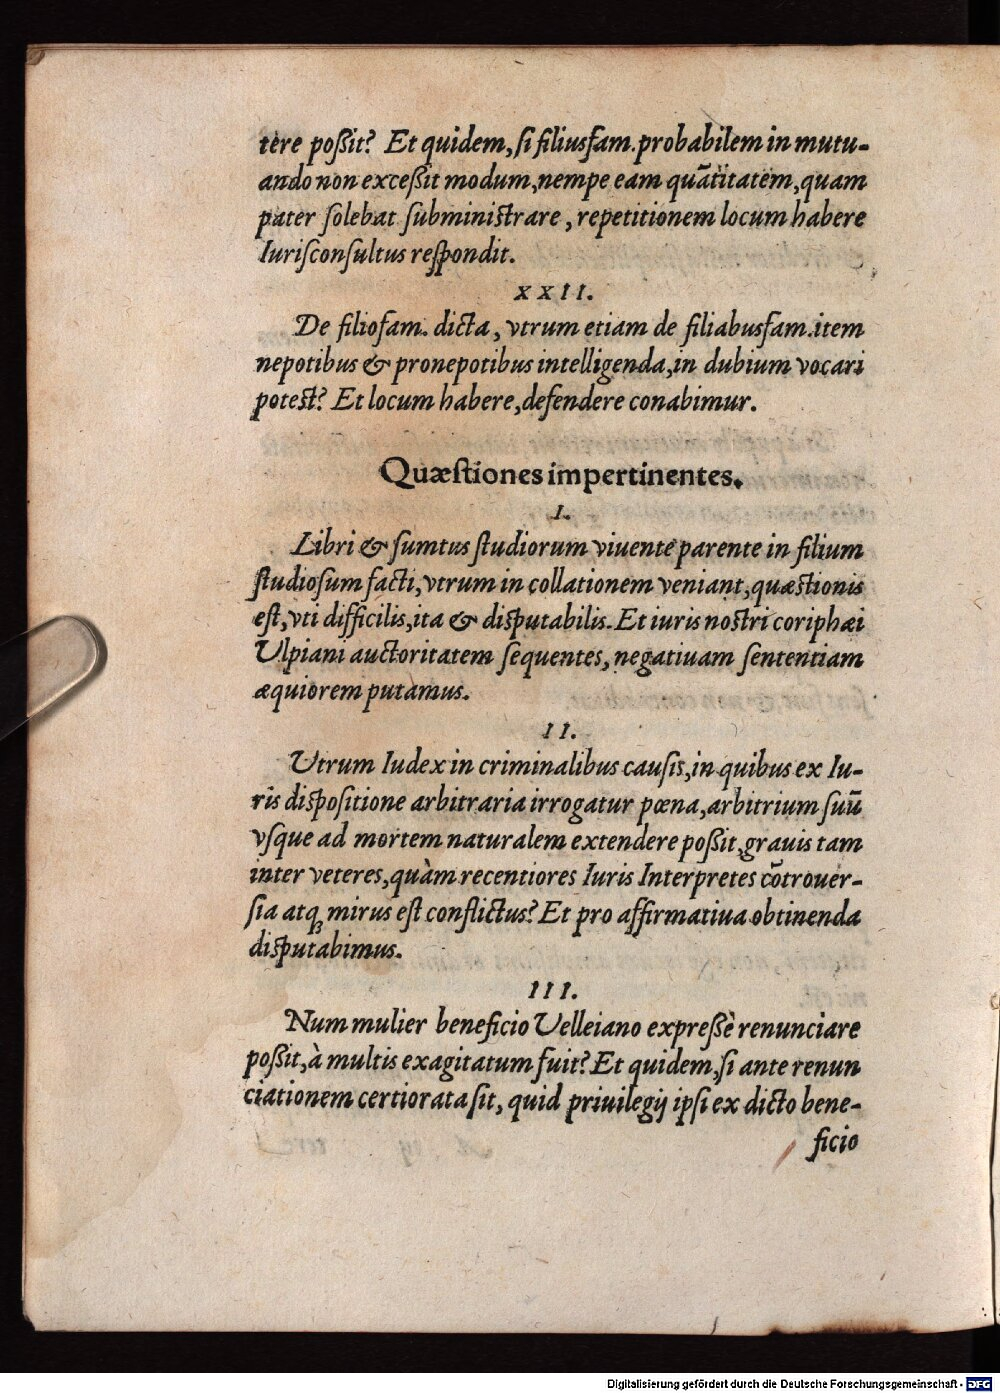 tere poßit? Et quidem, si filiusfam. probabilem in mutu-
ando non exceßit modum, nempe eam quãtitatem, quam
pater solebat subministrare, repetitionem locum habere
Iurisconsultus respondit.
XXII.
De filiofam. dicta, vtrum etiam de filiabusfam. item
nepotibus & pronepotibus intelligenda, in dubium vocari
potest? Et locum habere, defendere conabimur.
Quæstiones impertinentes.
I.
Libri & sumtus studiorum viuente parente in filium
studiosum facti, vtrum in collationem veniant, quæstionis
est, vti difficilis, ita & disputabilis. Et iuris nostri coriphæi
Ulpiani auctoritatem sequentes, negatiuam sententiam
æquiorem putamus.
II.
Utrum Iudex in criminalibus causis, in quibus ex Iu-
ris dispositione arbitraria irrogatur pœna, arbitrium suũ
vsque ad mortem naturalem extendere poßit, grauis tam
inter veteres, quàm recentiores Iuris Interpretes cõtrouer-
sia atq; mirus est conflictus? Et pro affirmatiua obtinenda
disputabimus.
III.
Num mulier beneficio Velleiano expreßè renunciare
poßit, à multis exagitatum fuit? Et quidem, si ante renun
ciationem certiorata sit, quid priuilegij ipsi ex dicto bene-
ficio
Digitalisierung gefördert durch die Deutsche Forschungsgemeinschaft - DFG